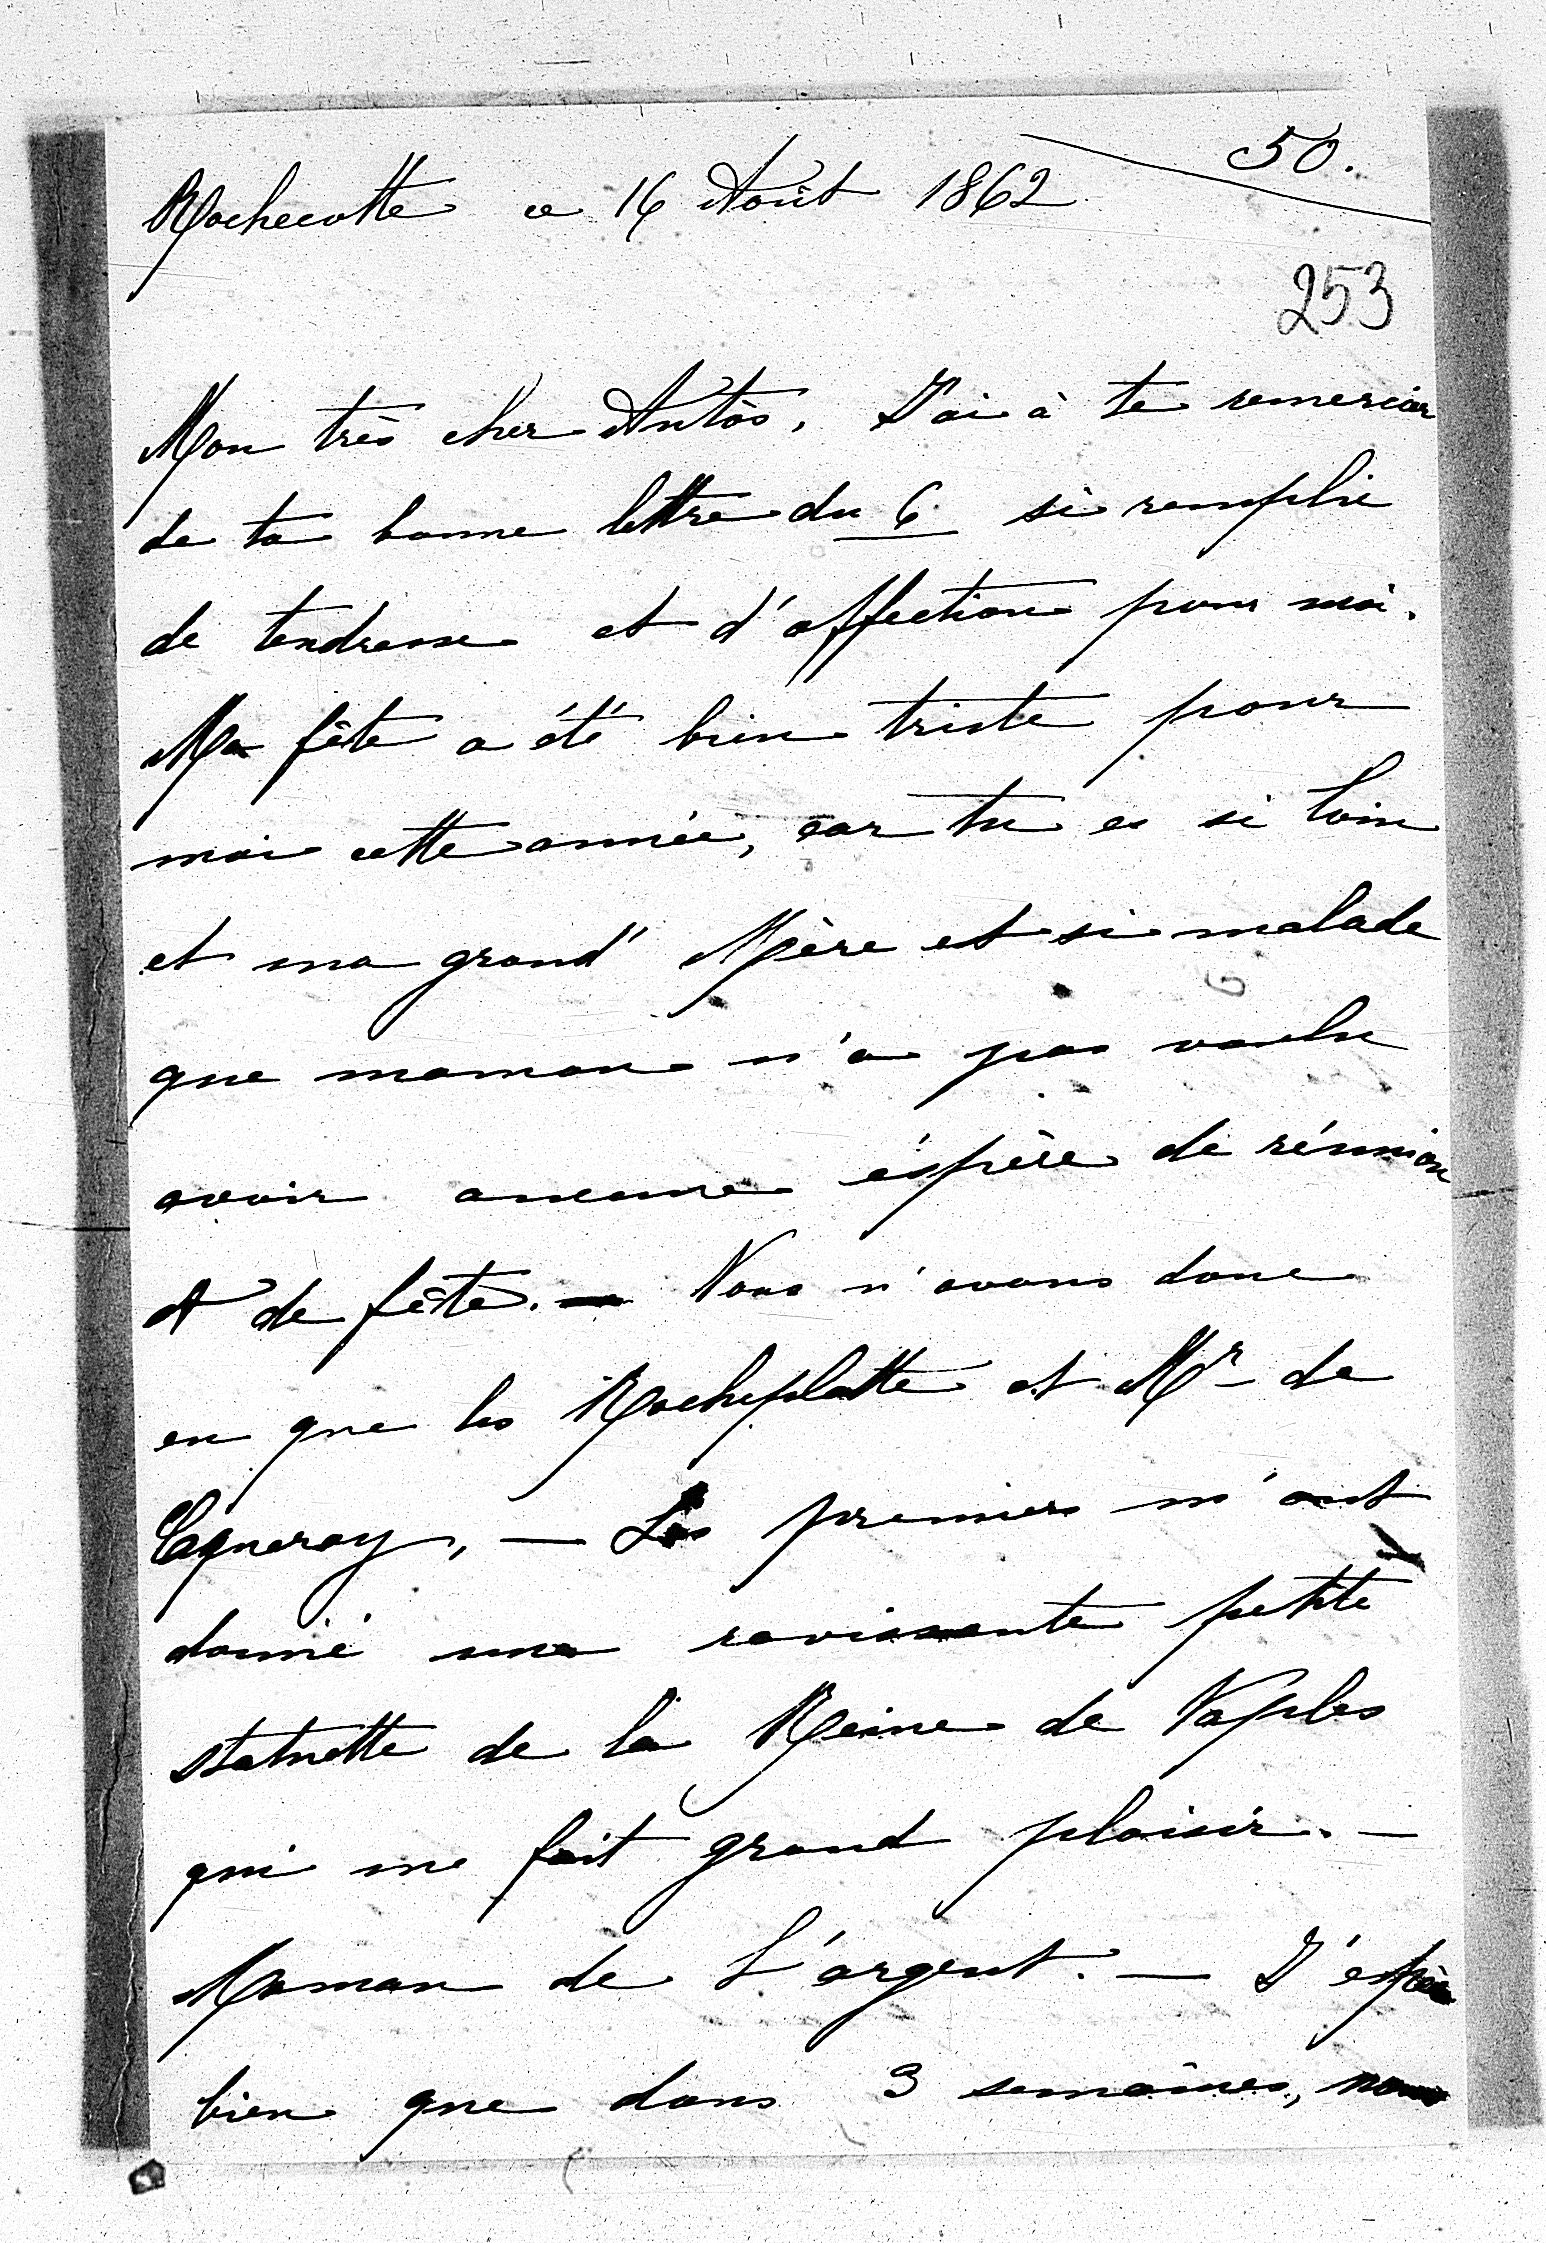 50.
Rochecotte ce 16 Août 1862
253
Mon très cher Antòs, J'ai à te remercier
de ta bonne lettre du 6 si remplie
de tendresse et d'affection pour moi.
Ma fête a été bien triste pour
moi cette année, car tu es si loin
et ma grand' Mère est si malade
que maman n'a pas voulu
avoir aucune éspèce de réunion
et de fête. — Nous n'avons donc
eu que les Rocheplatte et Mr de
— Les premiers m'ont
donné une ravissante petite
statuette de la Reine de Naples
qui me fait grand plaisir. —
Maman de l'argent. — J'éspère
bien que dans 3 semaines, nous